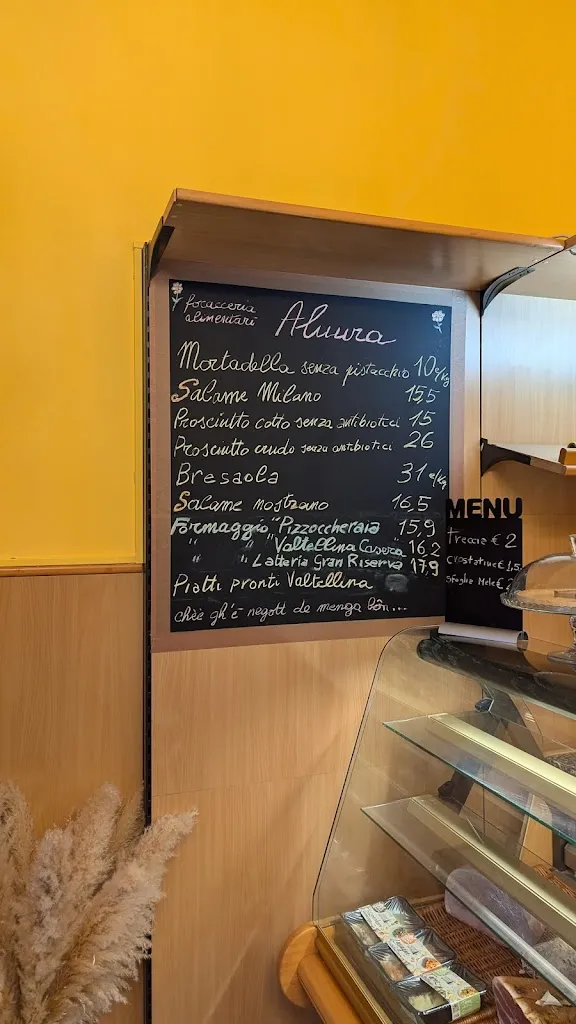 focacceria
alimentari
Aluura
Mortadella senza pistacchio 10 €/kg
Salame Milano 15,5
Prosciutto cotto senza antibiotici 15
Prosciutto crudo senza antibiotici 26
Bresaola 31 €/kg
Salame nostrano 16,5
Formaggio "Pizzoccheraia 15,9
" " "Valtellina Casera" 16,2
" " Latteria Gran Riserva 17,9
Piatti pronti Valtellina
chèè gh'è negott de menga bôn...
MENU
Treccie € 2
crostatine € 1,5
Sfoglie Mele €